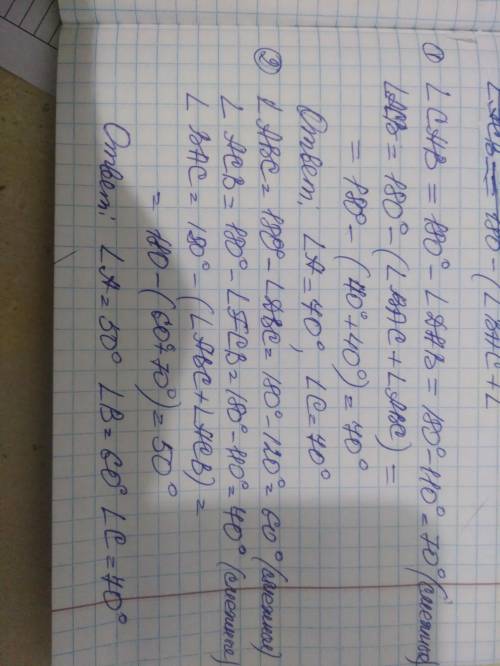 ∠ACB = 180 - (∠BAC + ∠
① ∠CAB = 180° - ∠DAB = 180° - 110° = 70° (смежные)
∠ACB = 180° - (∠BAC + ∠ABC) =
= 180° - (70° + 40°) = 70°
Ответ: ∠A = 70°, ∠C = 70°
② ∠ABC = 180° - ∠DBC = 180° - 120° = 60° (смежные)
∠ACB = 180° - ∠FCB = 180° - 110° = 70° (смежные)
∠BAC = 180° - (∠ABC + ∠ACB) =
= 180 - (60° + 70°) = 50°
Ответ: ∠A = 50° ∠B = 60° ∠C = 70°